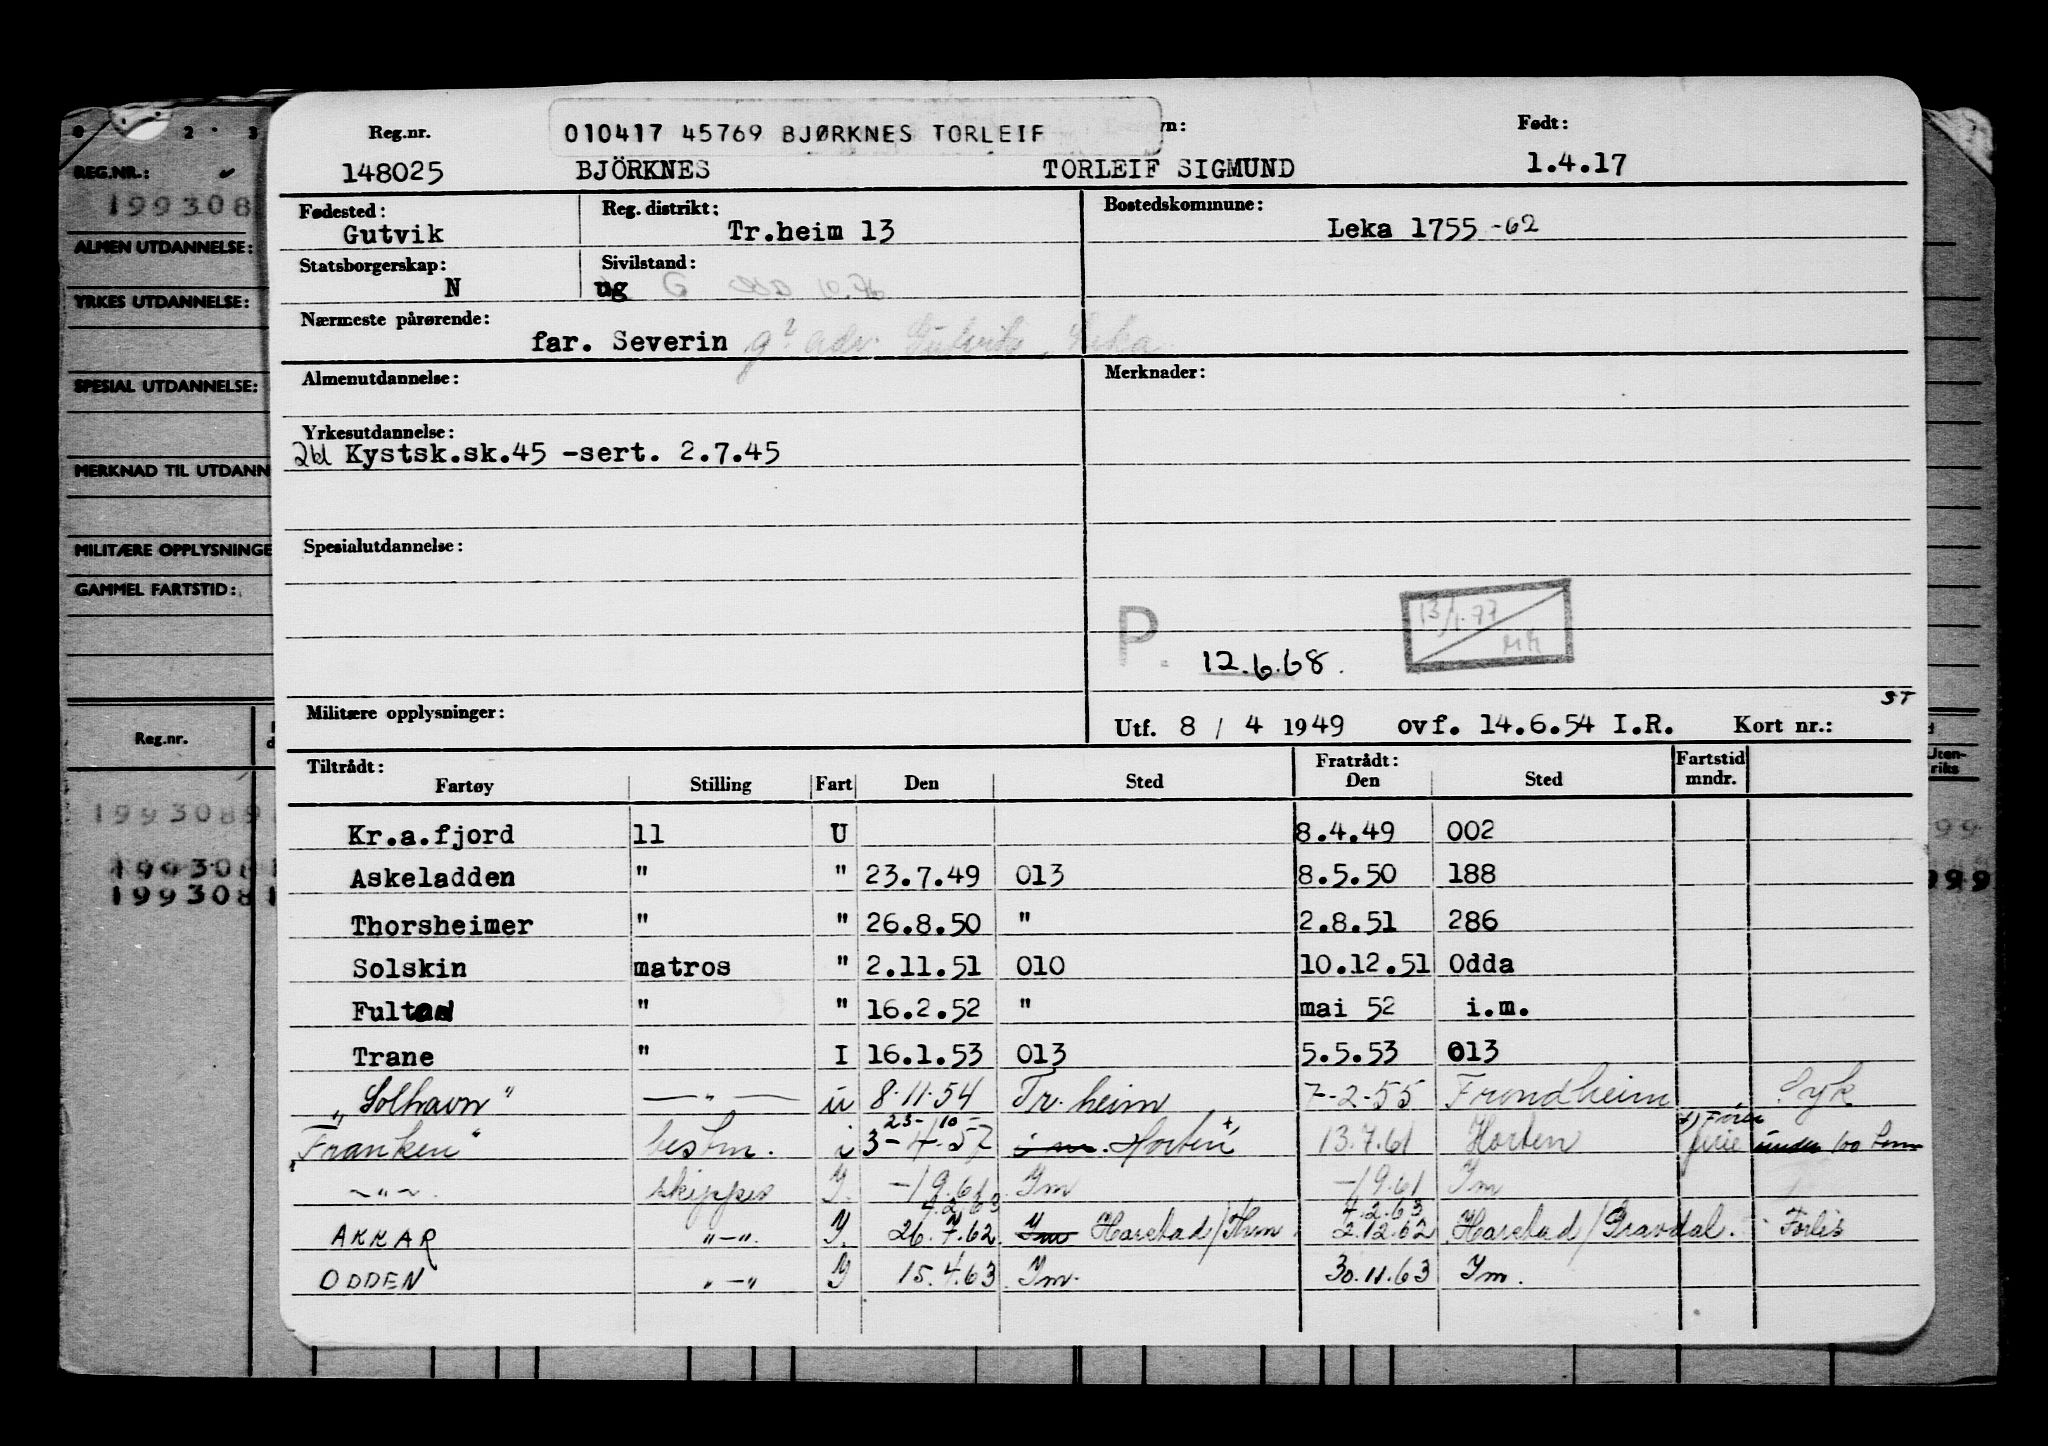 Reg.nr. 010417 45769 BJØRKNES TORLEIF Født:
148025 BJÖRKNES TORLEIF SIGMUND 1.4.17
Fødested: Reg. distrikt: Bostedskommune:
Gutvik Tr.heim 13 Leka 1755 -62
Statsborgerskap: Sivilstand:
N ug G
Nærmeste pårørende:
far. Severin g? adv. Gutvik, Leka
Almenutdannelse: Merknader:
Yrkesutdannelse:
2bl Kystsk.sk.45 -sert. 2.7.45
Spesialutdannelse:
13/1.77
P. 12.6.68.
Militære opplysninger: Utf. 8 / 4 1949 ovf. 14.6.54 I.R. Kort nr.: ST
Tiltrådt: Fratrådt: Fartstid
Fartøy Stilling Fart Den Sted Den Sted mndr.
Kr.a.fjord 11 U 8.4.49 002
Askeladden " " 23.7.49 013 8.5.50 188
Thorsheimer " " 26.8.50 " 2.8.51 286
Solskin matros " 2.11.51 010 10.12.51 Odda
" " 16.2.52 " mai 52 i.m.
Trane " I 16.1.53 013 5.5.53 013
"Solhavn" —"— u 8.11.54 Tr.heim 7-2-55 Trondheim Syk
23-10-
"Franken" bestm. i 3-4-57 Horten + 13.7.61 Horten
~"~. skipper Y. -/9.61 Ym -/9.61 Ym
4.2.63 4.2.63
AKKAR "-". Y. 26.7.62. Ym Harstad/ 2.12.62 Harstad/Gravdal. Forlis
ODDEN "-" Y 15.4.63 Ym. 30.11.63 Ym.
REG.NR.:
199308
ALMEN UTDANNELSE:
YRKES UTDANNELSE:
SPESIAL UTDANNELSE:
MERKNAD TIL UTDANN
MILITÆRE OPPLYSNINGE
GAMMEL FARTSTID:
Reg.nr.
Uten-
riks